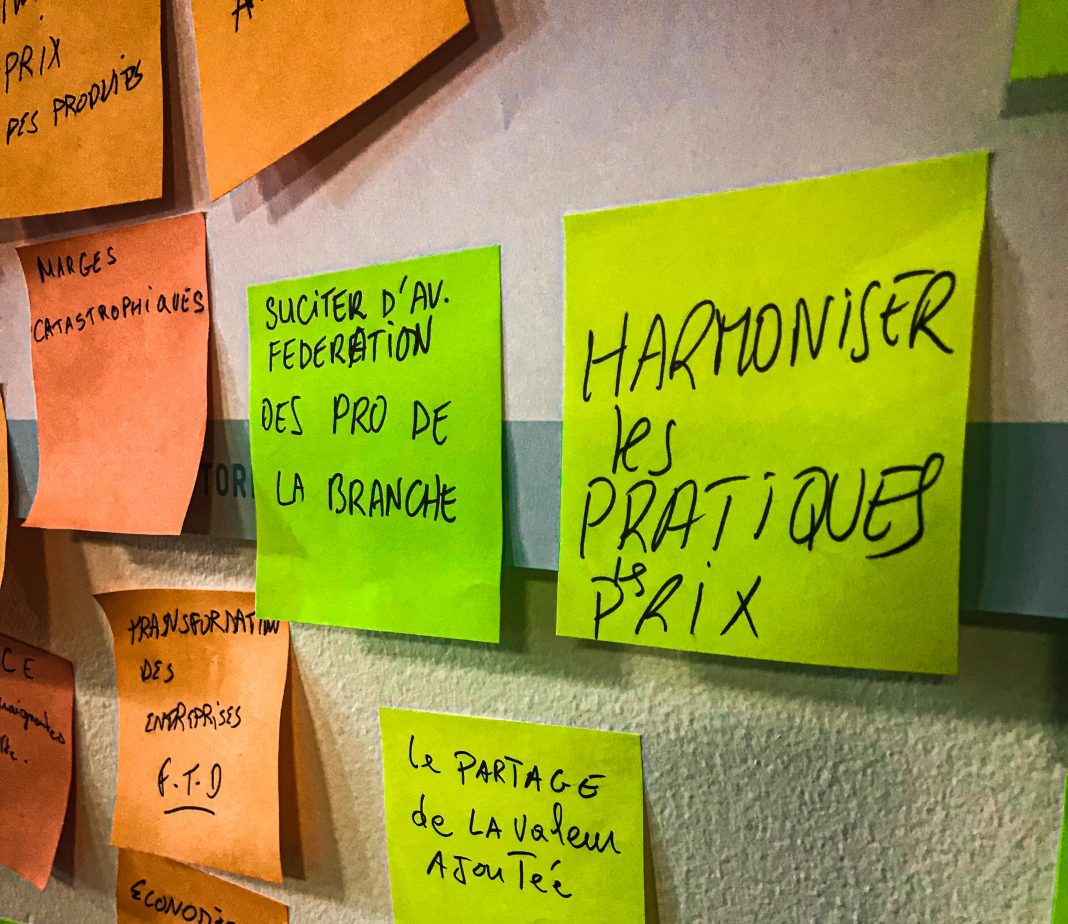 PRIX
DES PRODUITS
MARGES
CATASTROPHIQUES
SUCITER D'AV.
FEDERATION
DES PRO DE
LA BRANCHE
HARMONISER
les
PRATIQUES
PRIX
TOR
TRANSFORMATION
DES
ENTREPRISES
F.T.D
CE
le PARTAGE
de LA valeur
AJOUTÉE